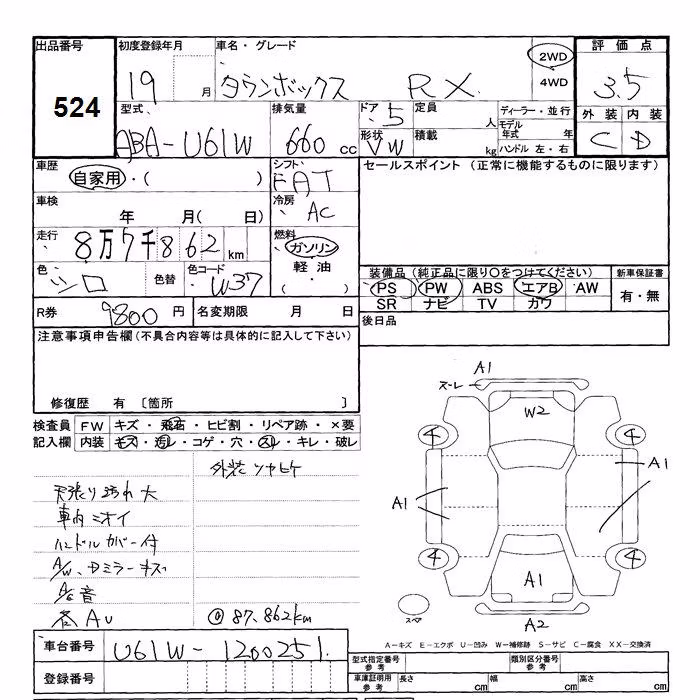 出品番号 初度登録年月 車名・グレード 評価点
524 19 月 タウンボックス RX 2WD 4WD 3.5
型式 排気量 ドア 定員 ディーラー・並行 外装 内装
ABA-U61W 660 cc 5 人 モデル年式 年 C D
形状 VW 積載 kg ハンドル 左・右
車歴 シフト セールスポイント (正常に機能するものに限ります)
自家用・( ) FAT
車検 冷房
年 月( 日) AC
走行 燃料
8万7千862 km ガソリン
色 シロ 色替 色コード W37 軽油 ・( )
装備品 (純正品に限り○をつけてください) 新車保証書
PS PW ABS エアB AW 有・無
SR ナビ TV カワ
R券 9800 円 名変期限 月 日 後日品
注意事項申告欄 (不具合内容等は具体的に記入して下さい)
修復歴 有 〔箇所 〕
検査員 FW キズ・飛石・ヒビ割・リペア跡・×要
記入欄 内装 キズ・汚レ・コゲ・穴・スレ・キレ・破レ
外装 ツヤヒケ
天張り汚れ大
車内ニオイ
ハンドルカバー付
A/W、Dミラーキズ
A/C音
各AU @87,862km
A1
スーレ
W2
4 4
A1
A1
4 4
A1
スペア
A2
A-キズ E-エクボ U-凹み W-補修跡 S-サビ C-腐食 XX-交換済
車台番号 U61W-1200251
登録番号
型式指定番号 参考 類別区分番号 参考
車庫証明用 参考 長さ cm 幅 cm 高さ cm